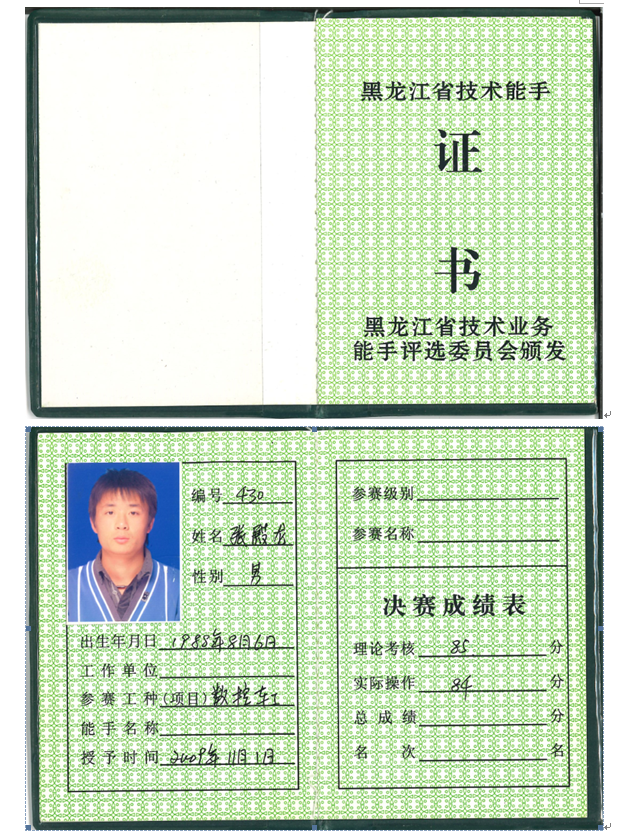 黑龙江省技术能手
证
书
黑龙江省技术业务
能手评选委员会颁发
编号 430
姓名 张殿龙
性别 男
出生年月日 1988年8月6日
工作单位
参赛工种(项目)数控车工
能手名称
授予时间 2009年11月1日
参赛级别
参赛名称
决赛成绩表
理论考核 85 分
实际操作 84 分
总成绩 分
名次 名